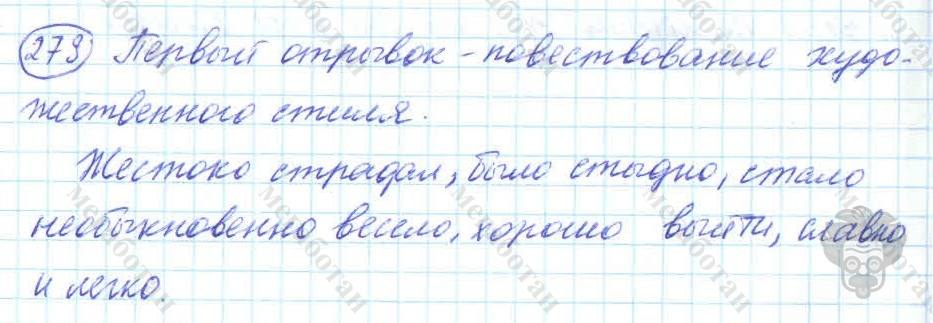 279 Первый отрывок - повествование худо-
жественного стиля.
Жестоко страдал, было стыдно, стало
необыкновенно весело, хорошо выйти, славно
и легко.